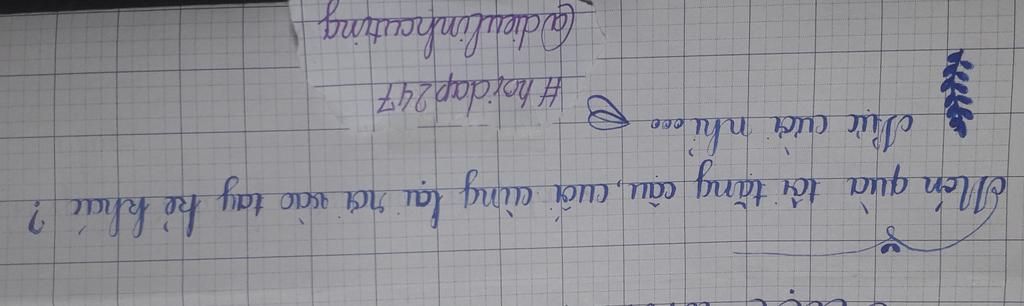 Món quà tôi tặng cậu, cuối cùng lại rơi vào tay kẻ khác?
Nực cười nhỉ...
#hoidap247
@dieulinhcuting